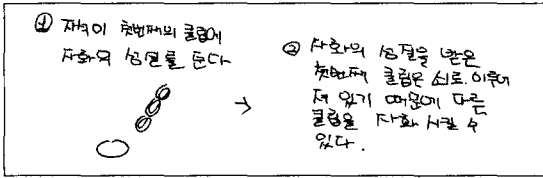 ① 자석이 첫번째의 클립에
자화의 성질를 준다
② 자화의 성질을 받은
첫번째 클립은 쇠로 이루어
져 있기 때문에 다른
클립을 자화 시킬 수
있다.